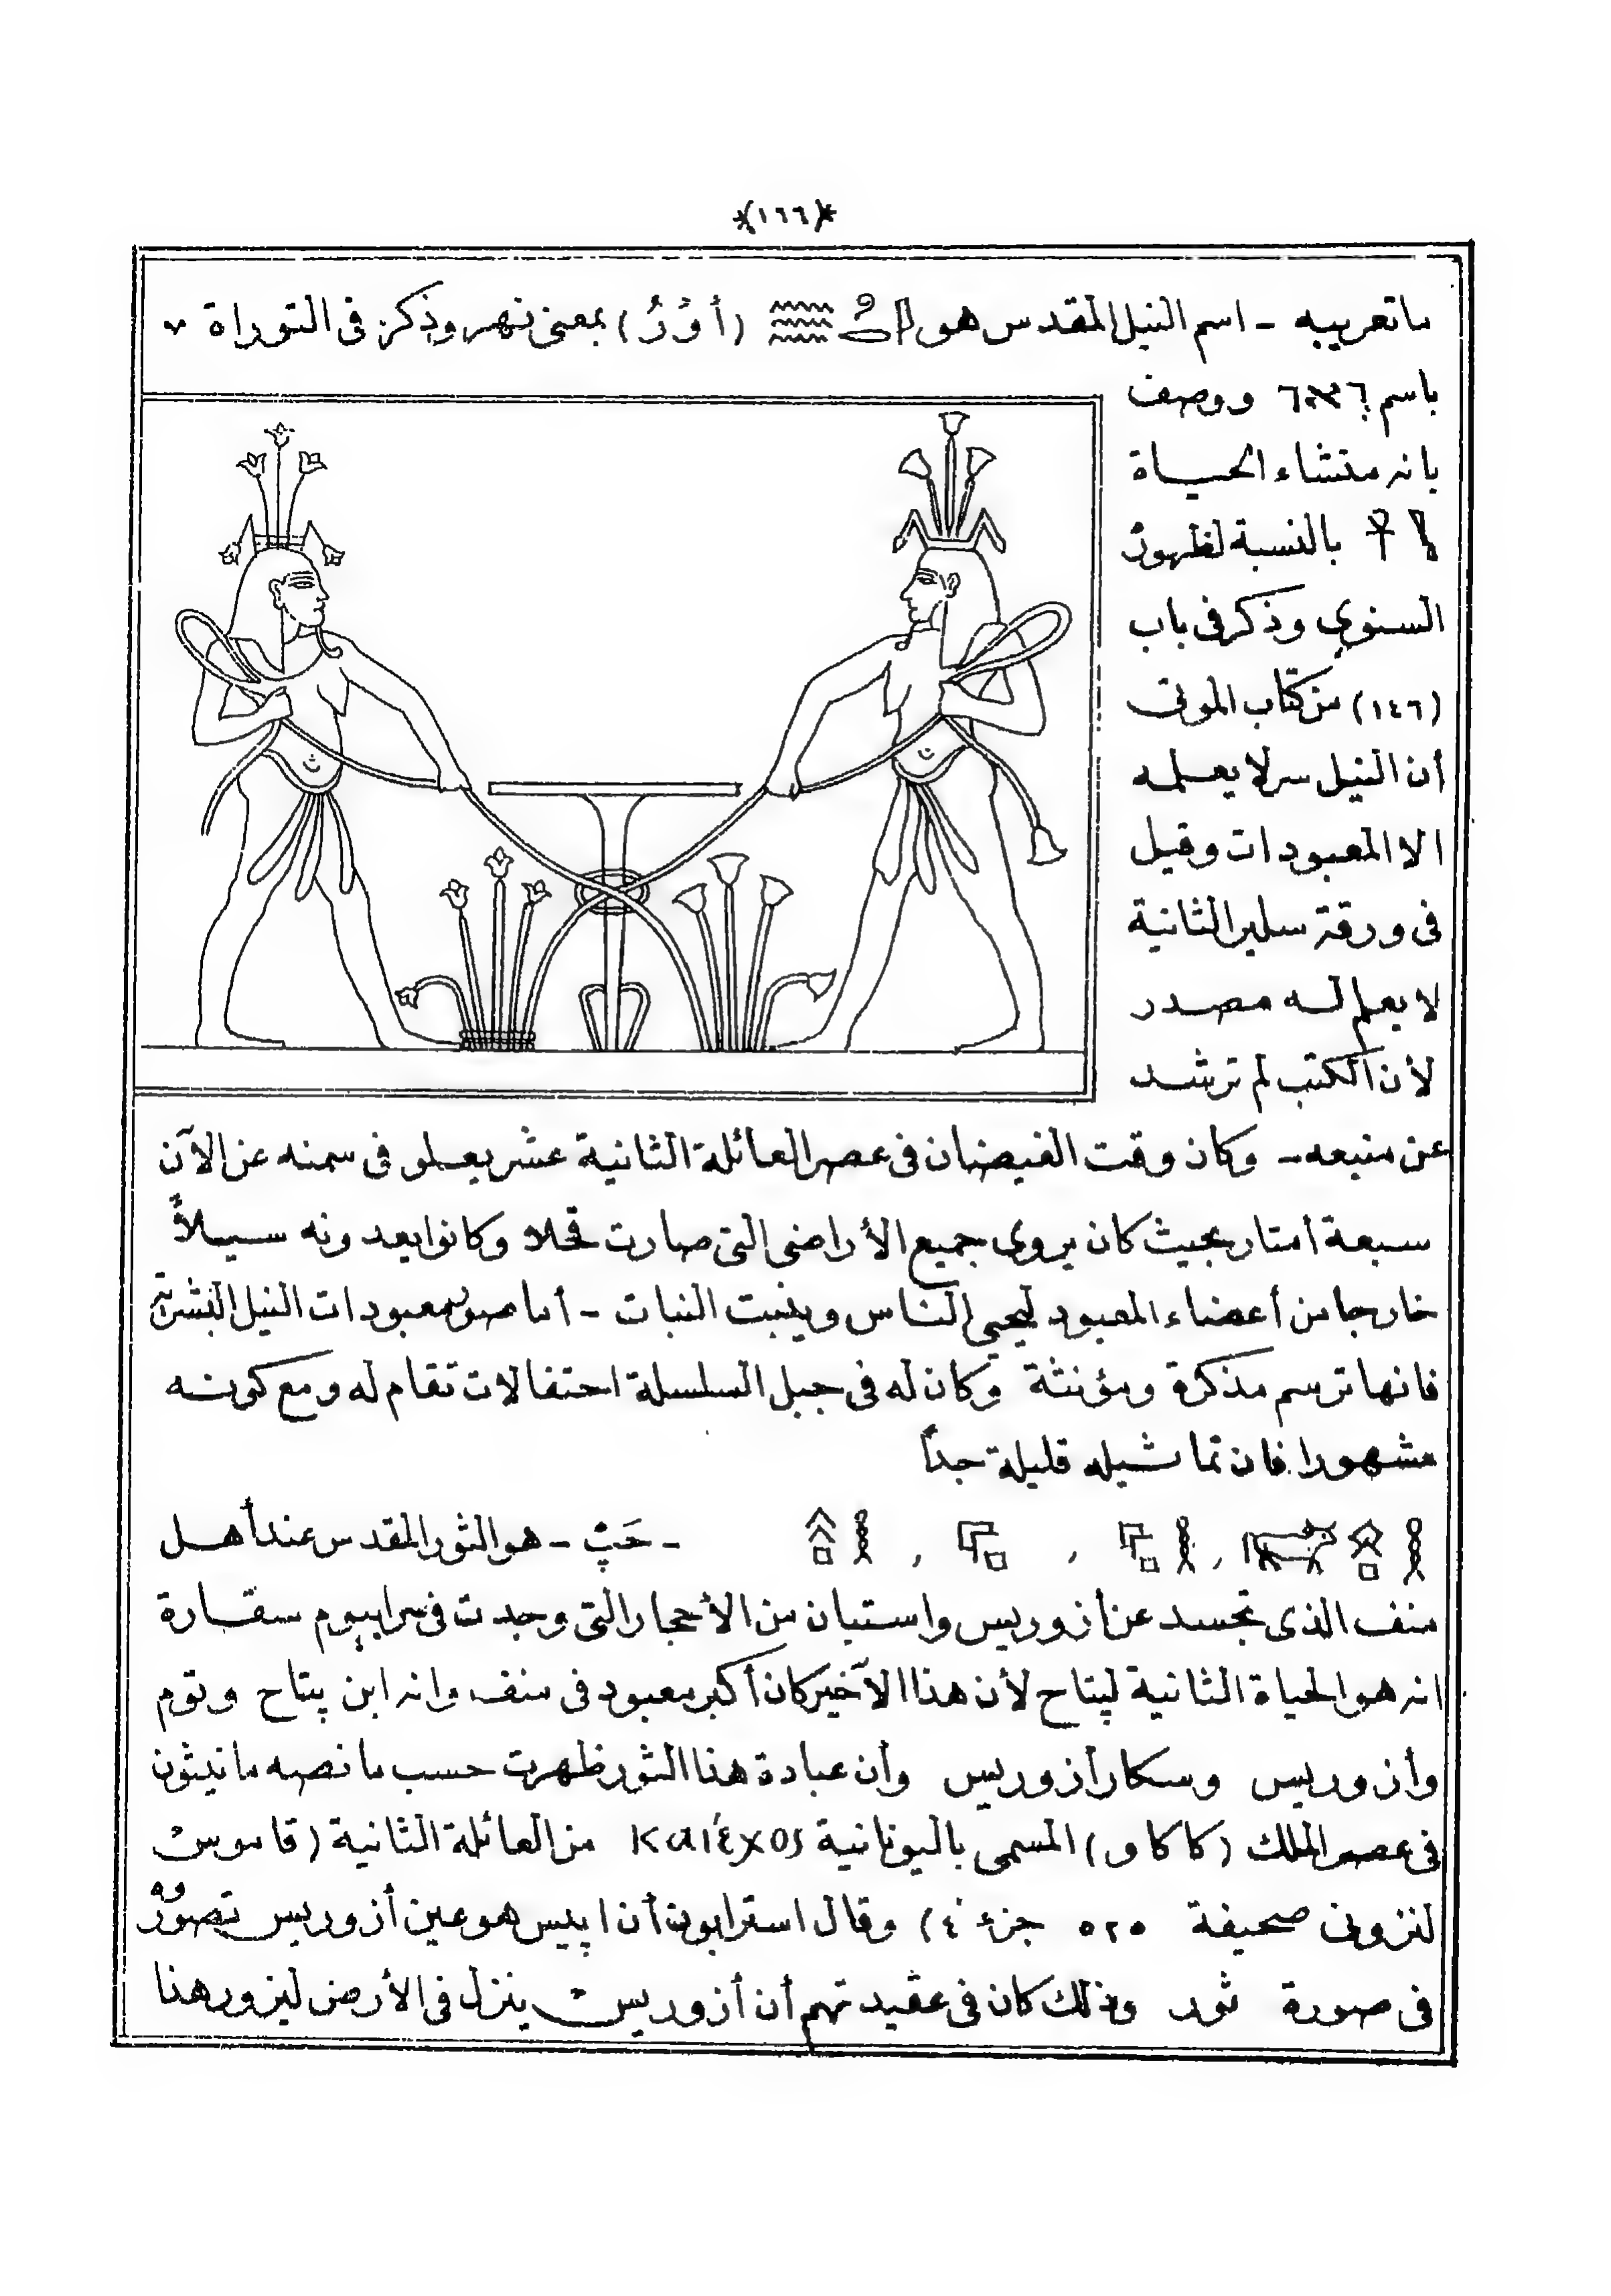 *(١٦٦)*
ماتعريبه - اسم النيل المقدس هو (أَوْرُ) بمعنى نهر وذكر فى التوراة
باسم ووصف
بانه منشاء الحياة
بالنسبة لظهوره
السنوى وذكر فى باب
(١٤٦) من كتاب الموتى
أن النيل سر لا يعلمه
الا المعبودات وقيل
فى ورقة سلير الثانية
لا يعلم له مصدر
لأن الكتب لم ترشد
عن منبعه - وكان وقت الفيضان فى عصر العائلة الثانية عشر يعلو فى سمنه عن الآن
سبعة أمتار بحيث كان يروى جميع الأراضى التى صارت قحلا وكانوا يعدونه سيلاً
خارجا من أعضاء المعبود ليحيي الناس وينبت النبات - أما صور معبودات النيل البشرية
فانها ترسم مذكرة ومؤنثة وكان له فى جبل السلسلة احتفالات تقام له ومع كونه
مشهورا فان تماثيله قليلة جداً
- حَپْ - هو الثور المقدس عند أهل
منف الذى تجسد عن أزوريس واستبان من الأحجار التى وجدت فى سرابيوم سقارة
انه هو الحياة الثانية لپتاح لأن هذا الآخير كان أكبر معبود فى منف وانه ابن پتاح وتوم
وأزوريس وسكار أزوريس وأن عبادة هذا الثور ظهرت حسب ما نصه مانيثون
فى عصر الملك (كاكاو) المسمى باليونانية Καιέχος من العائلة الثانية (قاموس
لنزونى صحيفة ٥٢٥ جزء ٤) وقال استرابون أن اپيس هو عين أزوريس تصوره
فى صورة ثور وذلك كان فى عقيدتهم أن أزوريس ينزل فى الأرض ليزور هنا